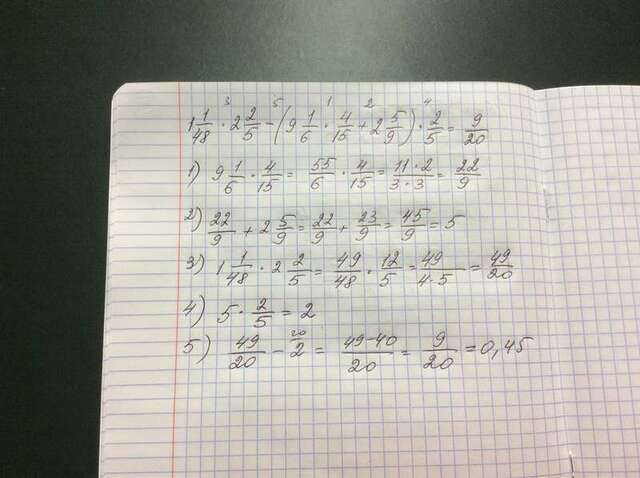 1 1/48 · 2 2/5 - (9 1/6 · 4/15 + 2 5/9) · 2/5 = 9/20
1) 9 1/6 · 4/15 = 55/6 · 4/15 = 11·2/3·3 = 22/9
2) 22/9 + 2 5/9 = 22/9 + 23/9 = 45/9 = 5
3) 1 1/48 · 2 2/5 = 49/48 · 12/5 = 49/4·5 = 49/20
4) 5 · 2/5 = 2
5) 49/20 - 2 = 49-40/20 = 9/20 = 0,45